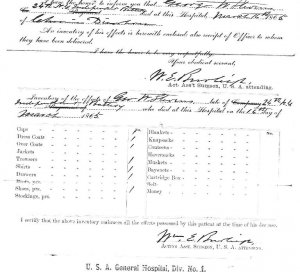 to inform you that George W. Stevens
died at this Hospital, March 16 1865
of Chronic Diarrhoea
An inventory of his effects is herewith enclosed also receipt of Officer to whom
they have been delivered.
I have the honor to be very respectfully,
Your obedient servant,
W. E. Burleigh
Act. Ass't Surgeon, U. S. A. attending.
Inventory of the Effects of Geo. W. Stevens, late of Company
who died at this Hospital on the 16 day of
March 1865
Caps
Great
Over Coats
Jackets
Trowsers
Shirts
Drawers
Boots, prs.
Shoes, prs.
Stockings, prs.
Blankets
Knapsacks
Canteens
Haversacks
Muskets
Bayonets
Cartridge Box
Belt
Money
I certify that the above inventory embraces all the effects possessed by this patient at the time of his decease.
Wm. E. Burleigh
Acting Asst. Surgeon, U. S. A. attending.
U. S. A. General Hospital, Div. No. 1.